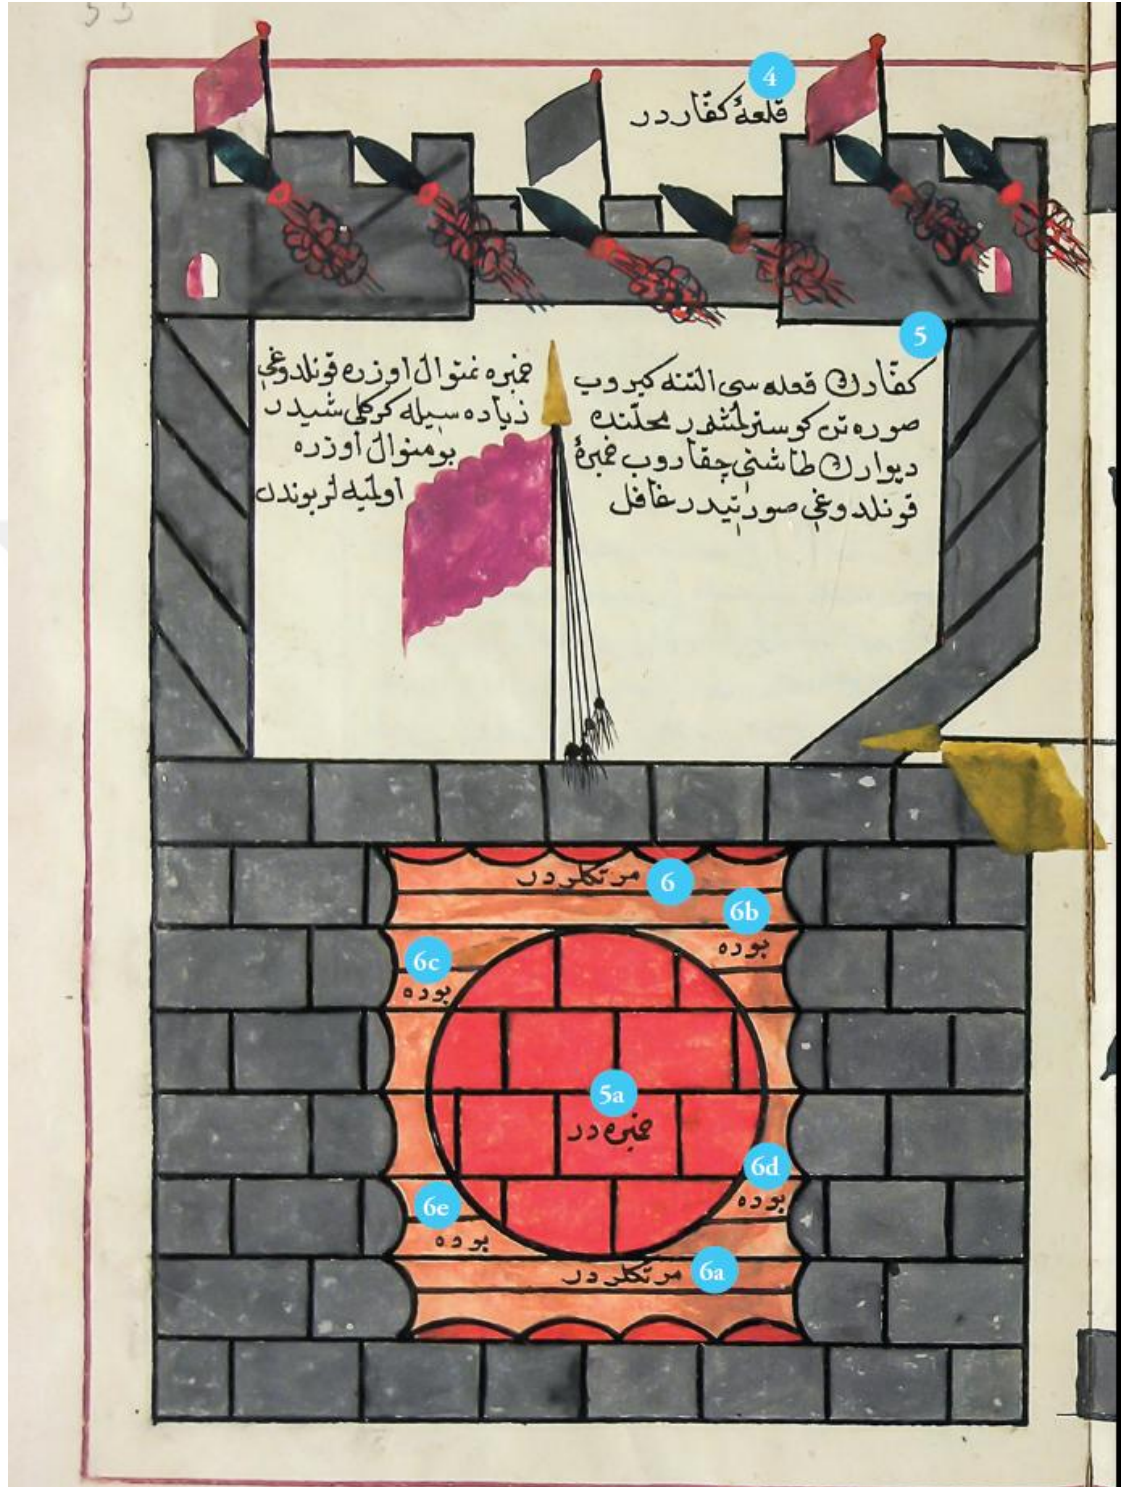 55
4
قلعۀ كفّاردر
5
كفّارك قلعه سى التنه كيروب
صورەتن كوسترلمشدر محلنده
ديوارك طاشنى چقاروب خمبرۀ
قونلدوغى صورتيدر غافل
خمبره نمنوال اوزره قونلدوغى
زياده سيله كركلى شيدر
بو منوال اوزره
اولميه لر بوندن
6
مرتكلردر
6b
بوده
6c
بوده
5a
خمبره در
6d
بوده
6e
بوده
6a
مرتكلردر